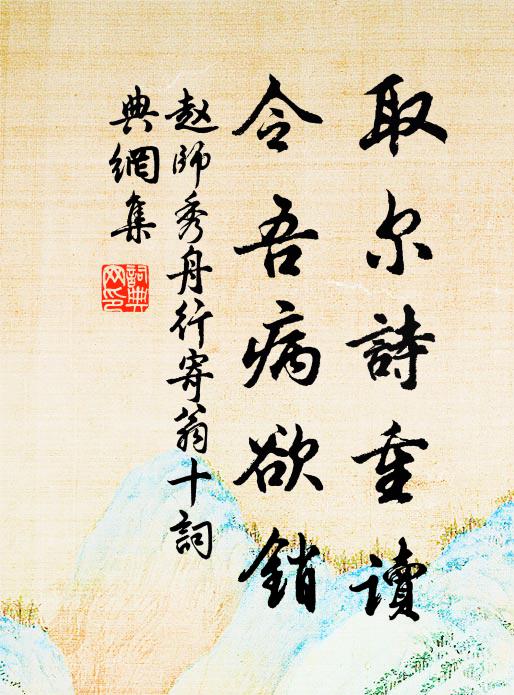 取尔詩重读
令吾病欲銷
赵师秀舟行寄翁十詞
典網集
詞典網印